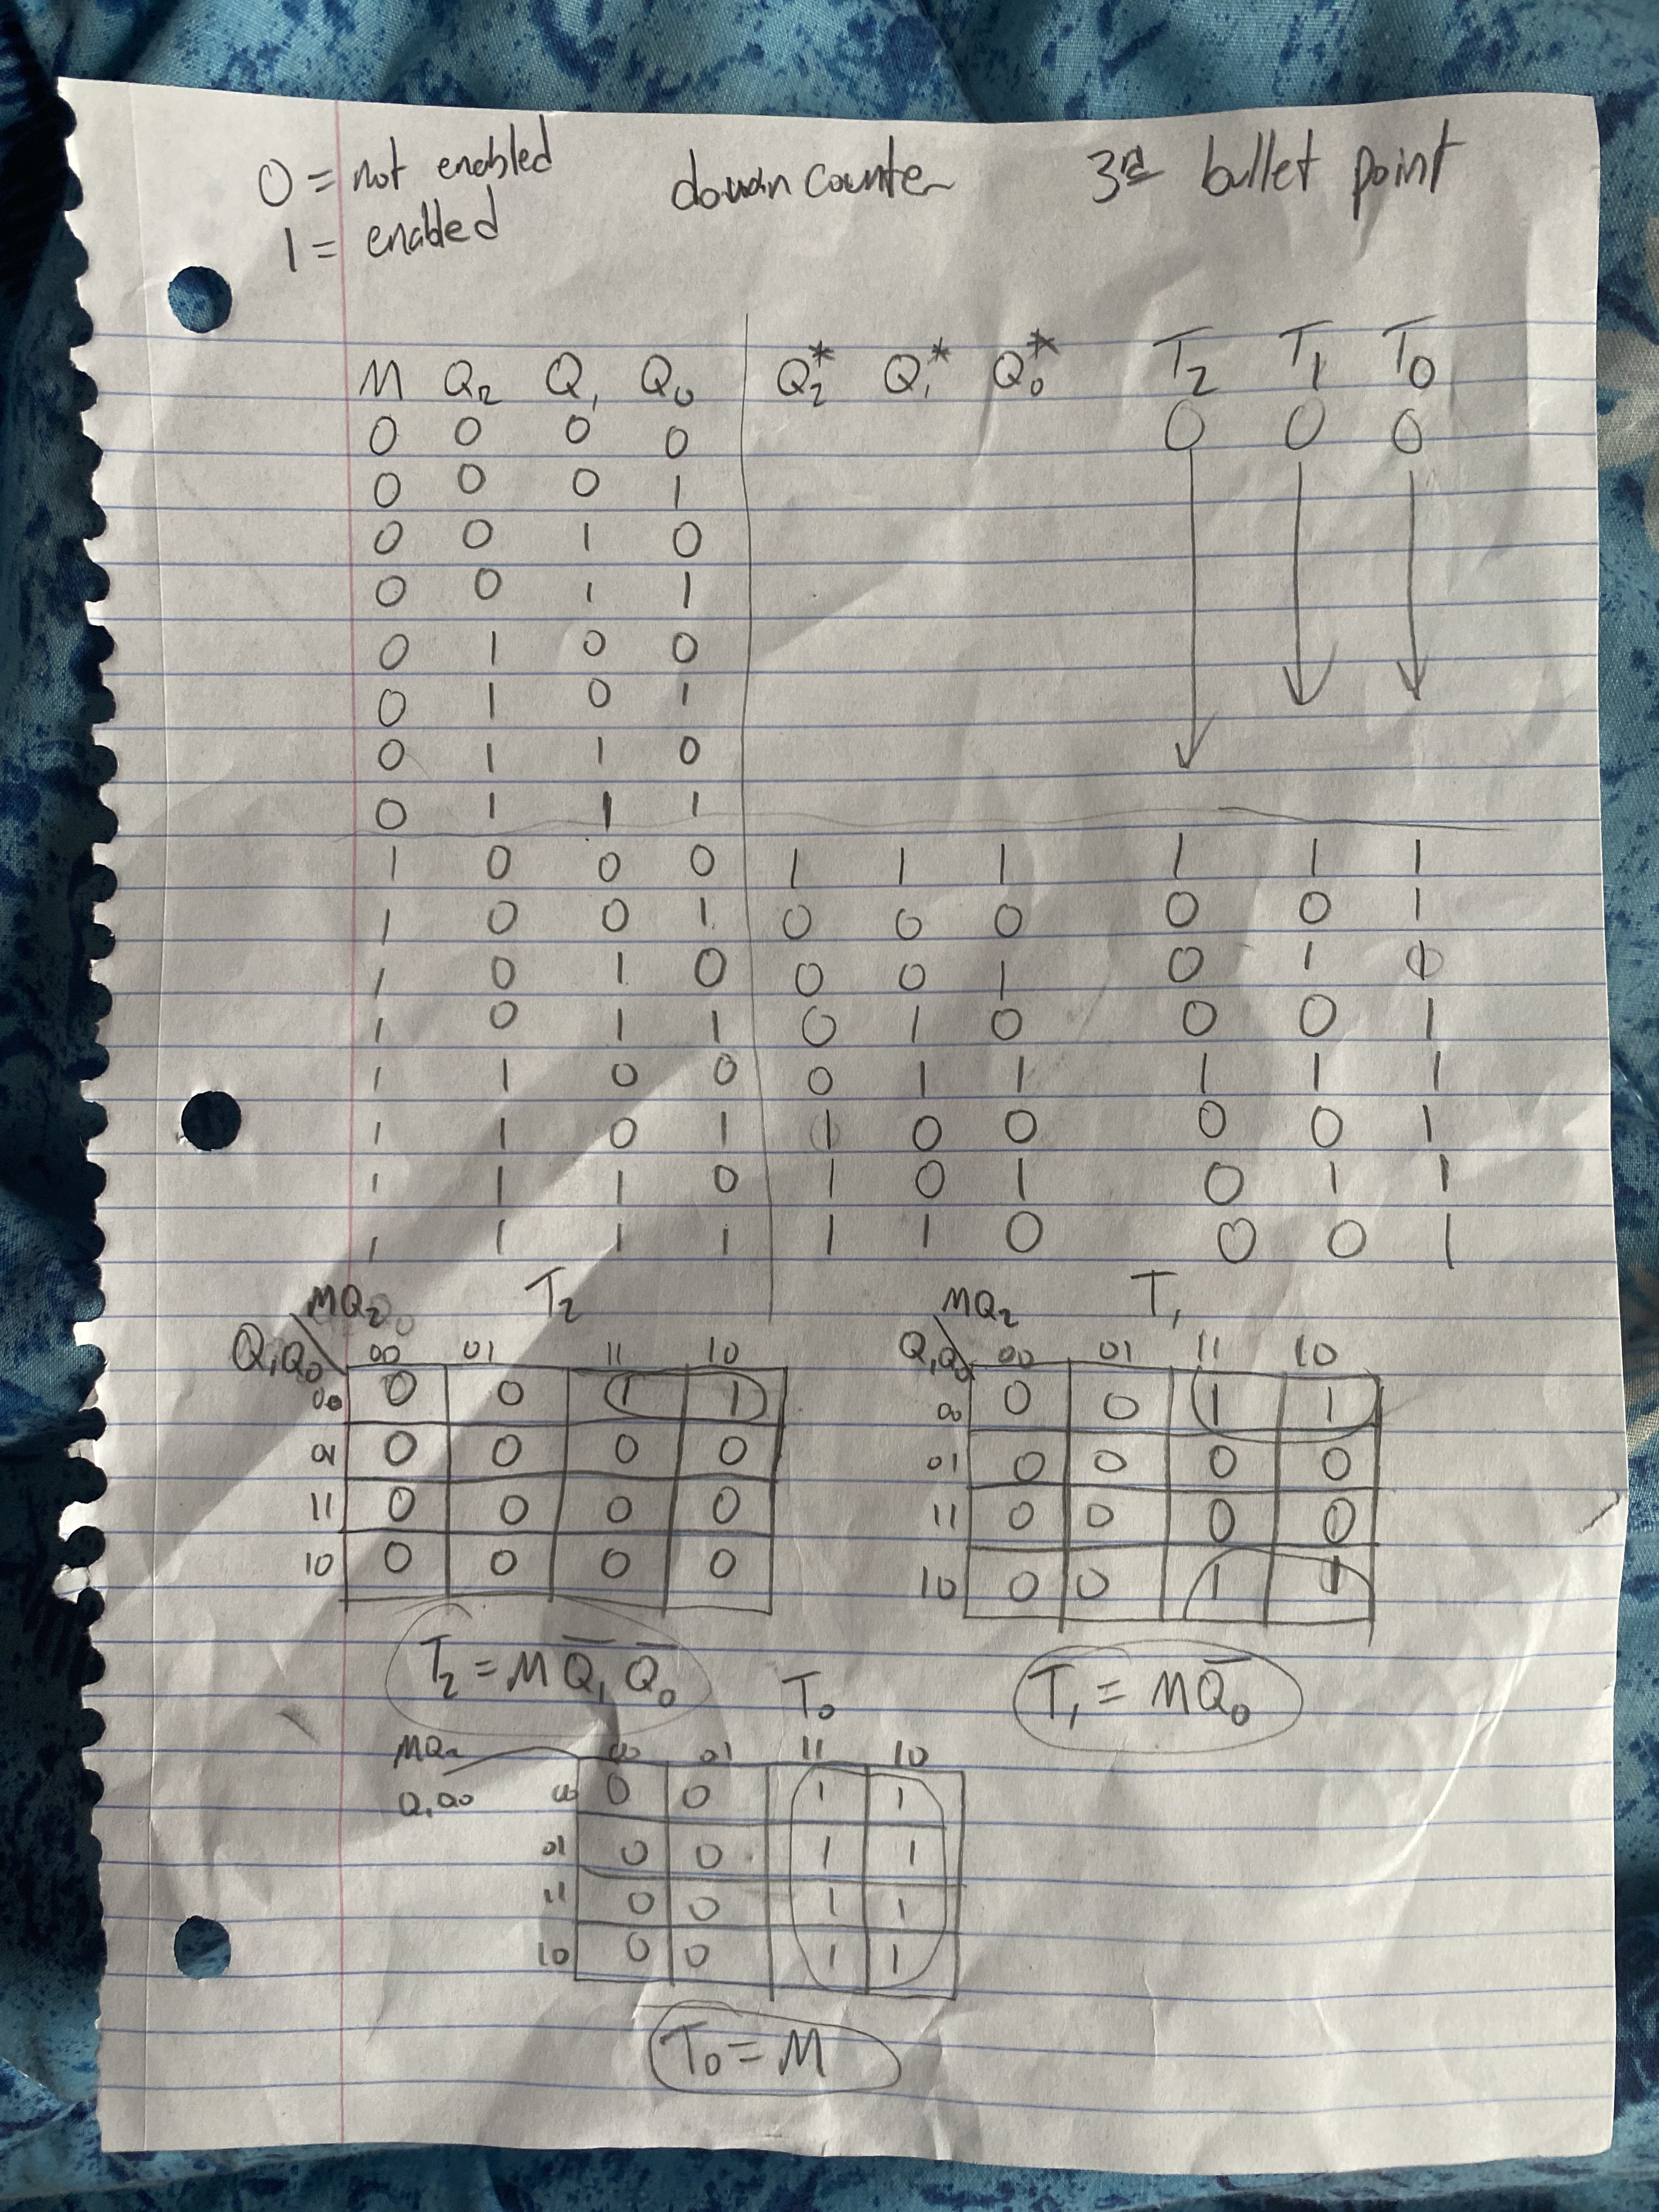 0 = not enabled down counter 3rd bullet point
1 = enabled
M Q2 Q1 Q0 Q2* Q1* Q0* T2 T1 T0
0 0 0 0 0 0 0
0 0 0 1
0 0 1 0
0 0 1 1
0 1 0 0
0 1 0 1
0 1 1 0
0 1 1 1
1 0 0 0 1 1 1 1 1 1
1 0 0 1 0 0 0 0 0 1
1 0 1 0 0 0 1 0 1 1
1 0 1 1 0 1 0 0 0 1
1 1 0 0 0 1 1 1 1 1
1 1 0 1 1 0 0 0 0 1
1 1 1 0 1 0 1 0 1 1
1 1 1 1 1 1 0 0 0 1
MQ2 T2
Q1Q0 00 01 11 10
00 0 0 1 1
01 0 0 0 0
11 0 0 0 0
10 0 0 0 0
T2 = M Q̅1 Q̅0
MQ2 T1
Q1Q0 00 01 11 10
00 0 0 1 1
01 0 0 0 0
11 0 0 0 0
10 0 0 1 1
T1 = M Q̅0
T0
MQ2 00 01 11 10
Q1Q0 00 0 0 1 1
01 0 0 1 1
11 0 0 1 1
10 0 0 1 1
T0 = M